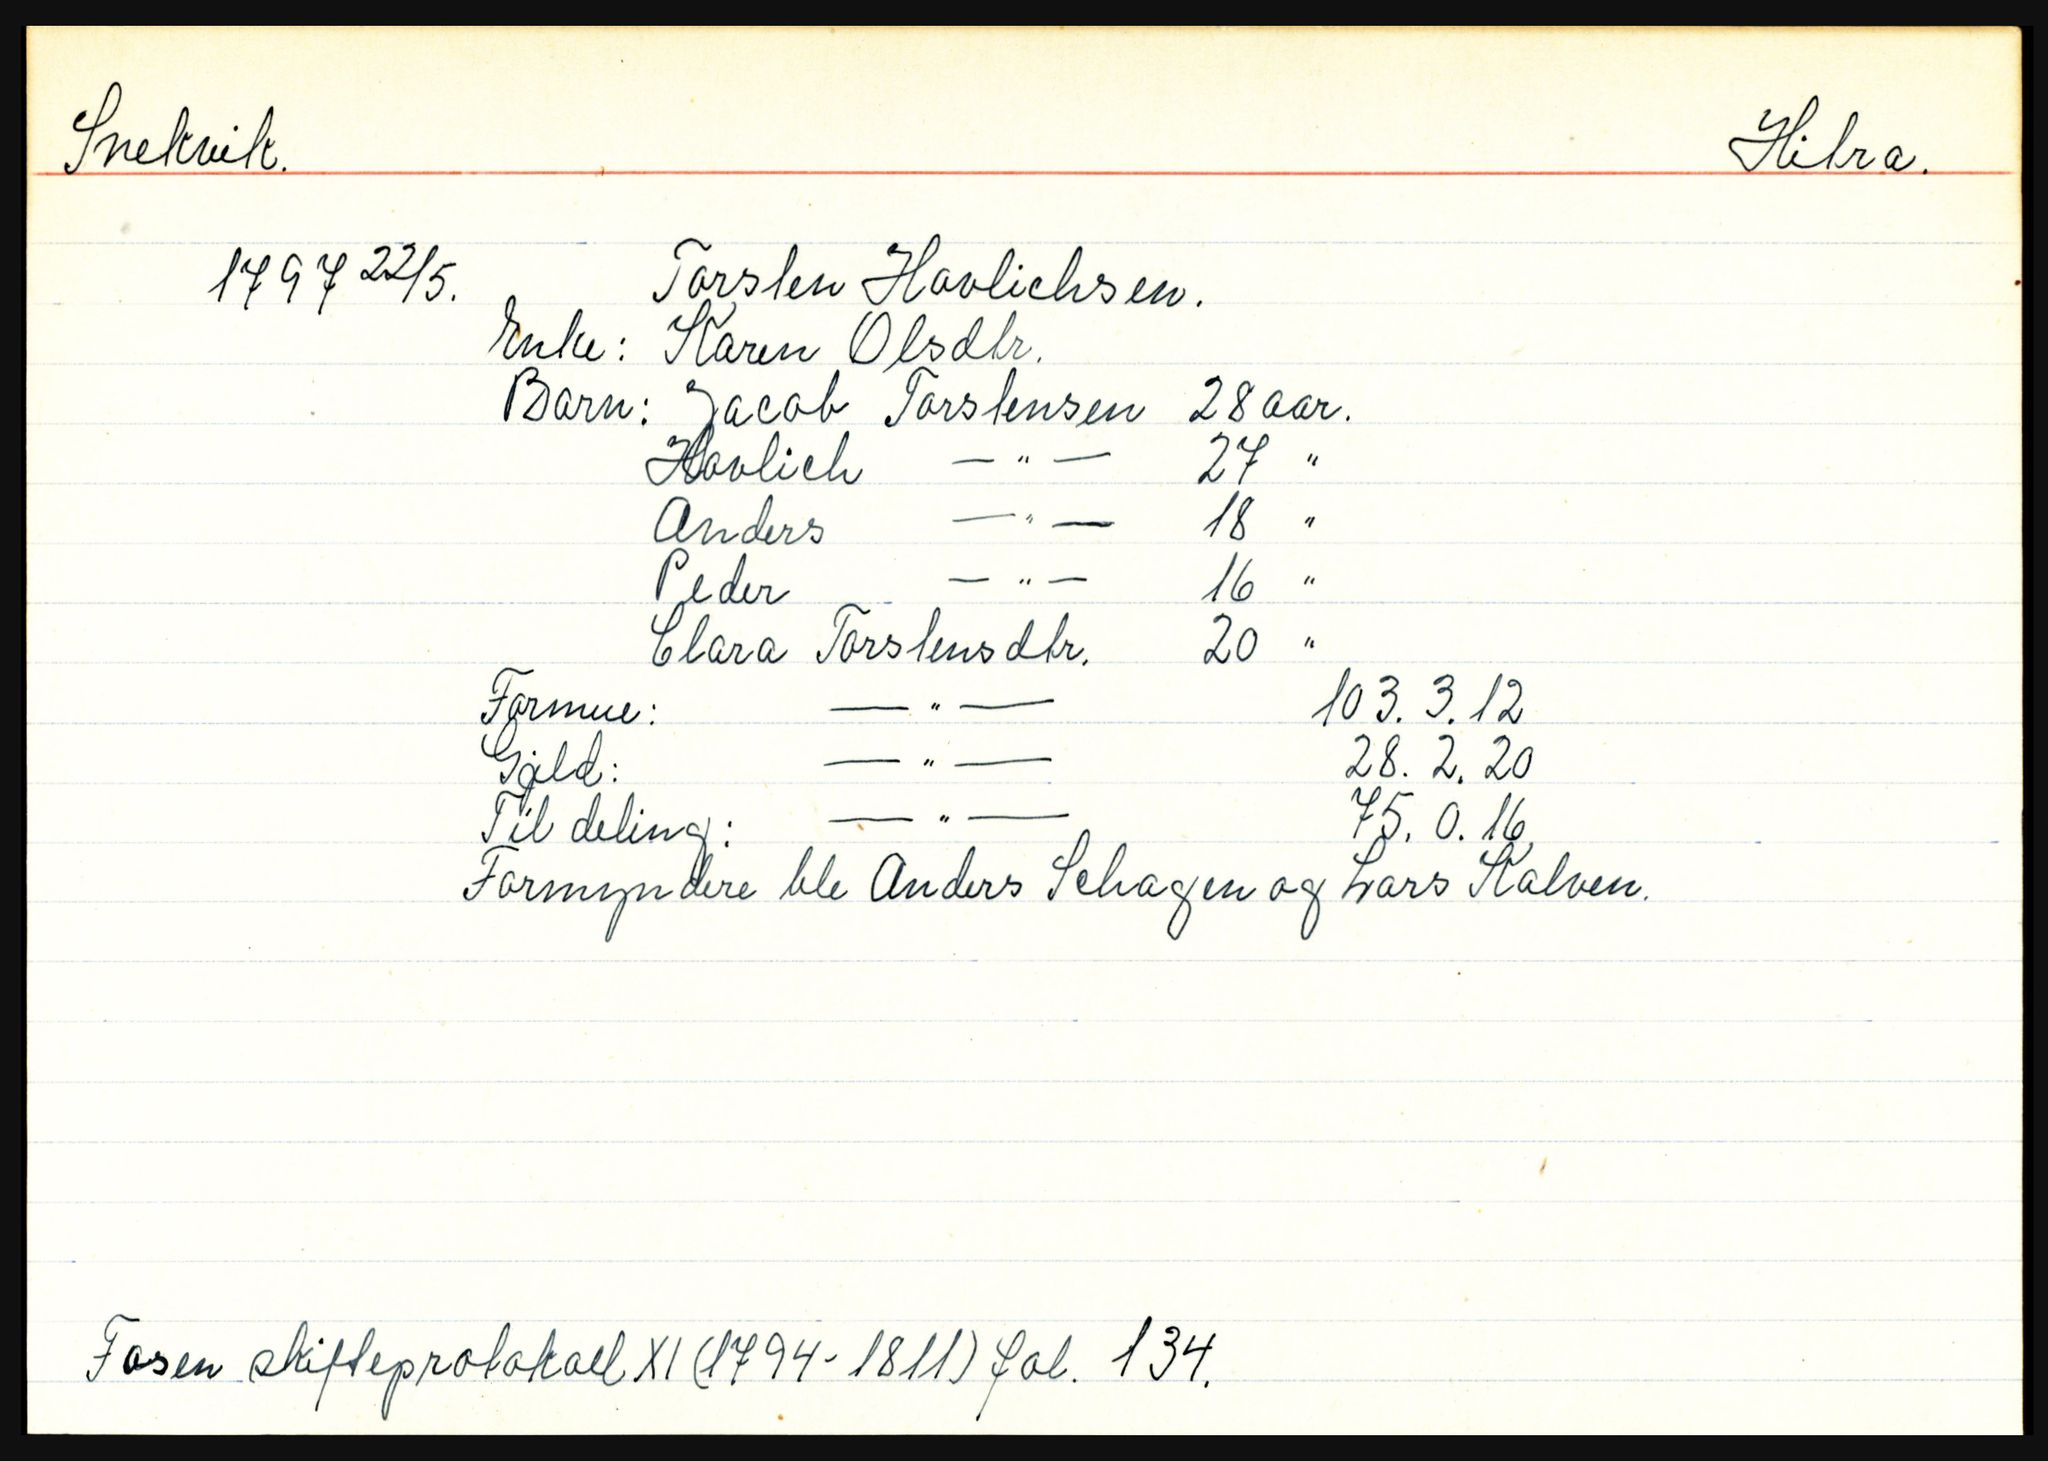 Snekvik. Hitra.
1797 22/5. Torsten Havlichsen.
Enke: Karen Olsdtr.
Barn: Jacob Torstensen 28 aar.
Havlich — " — 27 "
Anders — " — 18 "
Peder — " — 16 "
Clara Torstensdtr. 20 "
Formue: — " — 103. 3. 12
Gjæld: — " — 28. 2. 20
Til deling: — " — 75. 0. 16
Formyndere ble Anders Schagen og Lars Kalven.
Fosen skifteprotokoll XI (1794-1811) fol. 134.